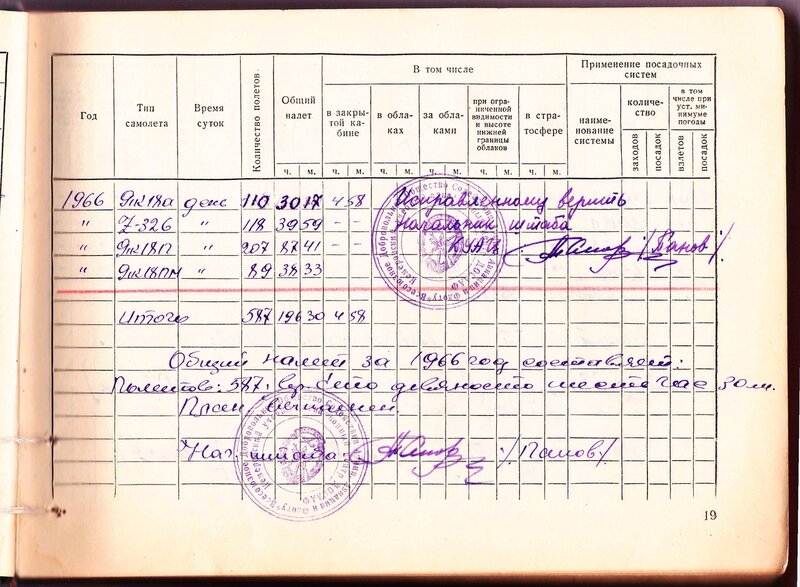 Год
Тип самолета
Время суток
Количество полетов.
Общий налет
В том числе
в закрытой кабине
в облаках
за облаками
при ограниченной видимости и высоте нижней границы облаков
в стратосфере
Применение посадочных систем
наименование системы
количество
заходов
посадок
в том числе при уст. минимуме погоды
взлетов
посадок
ч. м. ч. м. ч. м. ч. м. ч. м. ч. м.
1966 Як18а день 110 30 17 4 58 Исправленному верить
" Z-326 " 118 39 59 - - Начальник штаба
" Як18П " 207 87 41 - - /Панов/.
" Як18ПМ " 89 38 33
Итого 587 196 30 4 58
Общий налет за 1966 год составляет:
Полетов: 587, вр. Сто девяносто шесть час 30 м.
План
Нач. штаба: /Панов/
19